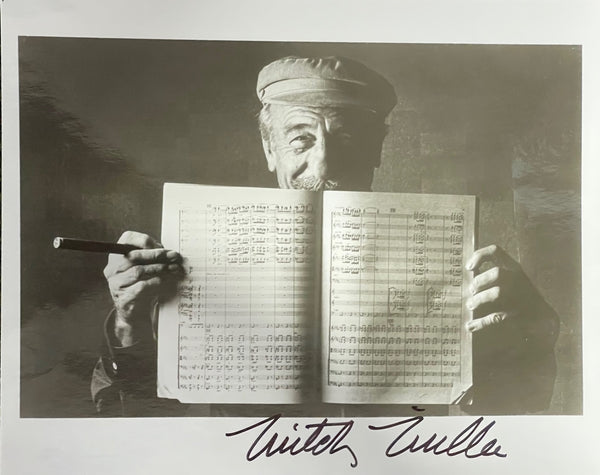 Mitch Miller